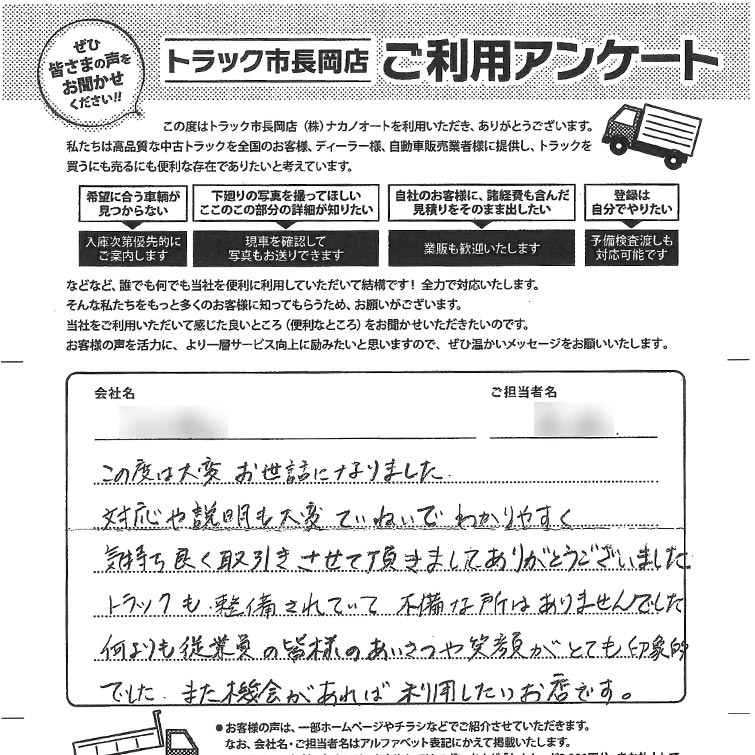 ぜひ
皆さまの声を
お聞かせ
ください!!
トラック市長岡店 ご利用アンケート
この度はトラック市長岡店(株)ナカノオートを利用いただき、ありがとうございます。
私たちは高品質な中古トラックを全国のお客様、ディーラー様、自動車販売業者様に提供し、トラックを
買うにも売るにも便利な存在でありたいと考えています。
希望に合う車輌が
見つからない
入庫次第優先的に
ご案内します
下廻りの写真を撮ってほしい
ここのこの部分の詳細が知りたい
現車を確認して
写真もお送りできます
自社のお客様に、諸経費も含んだ
見積りをそのまま出したい
業販も歓迎いたします
登録は
自分でやりたい
予備検査渡しも
対応可能です
などなど、誰でも何でも当社を便利に利用していただいて結構です!全力で対応いたします。
そんな私たちをもっと多くのお客様に知ってもらうため、お願いがございます。
当社をご利用いただいて感じた良いところ(便利なところ)をお聞かせいただきたいのです。
お客様の声を活力に、より一層サービス向上に励みたいと思いますので、ぜひ温かいメッセージをお願いいたします。
会社名 ご担当者名
この度は大変 お世話になりました.
対応や説明も大変 ていねいで わかりやすく
気持ち良く取引きさせて頂きましてありがとうございました.
トラックも 整備されていて 不備な所はありませんでした
何よりも従業員の皆様のあいさつや笑顔がとても印象的
でした. また機会があれば 利用したいお店です。
●お客様の声は、一部ホームページやチラシなどでご紹介させていただきます。
なお、会社名・ご担当者名はアルファベット表記にかえて掲載いたします。